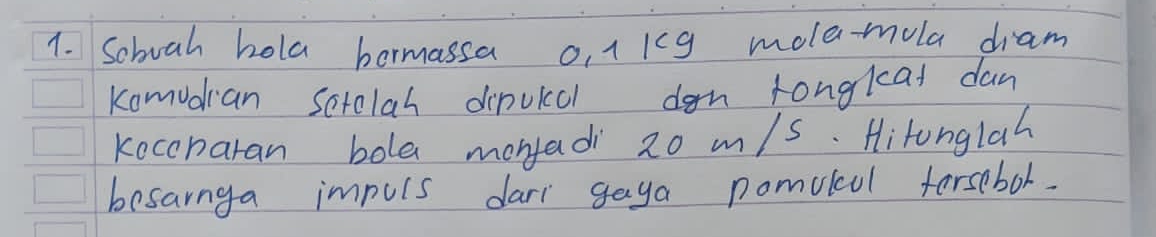 1. Sebuah bola bermassa 0,1 kg mola-mula diam
Kemudian setelah dipukul dgn tongkat dan
Kecepatan bola menjadi 20 m/s. Hitunglah
besarnya impuls dari gaya pemukul tersebut.